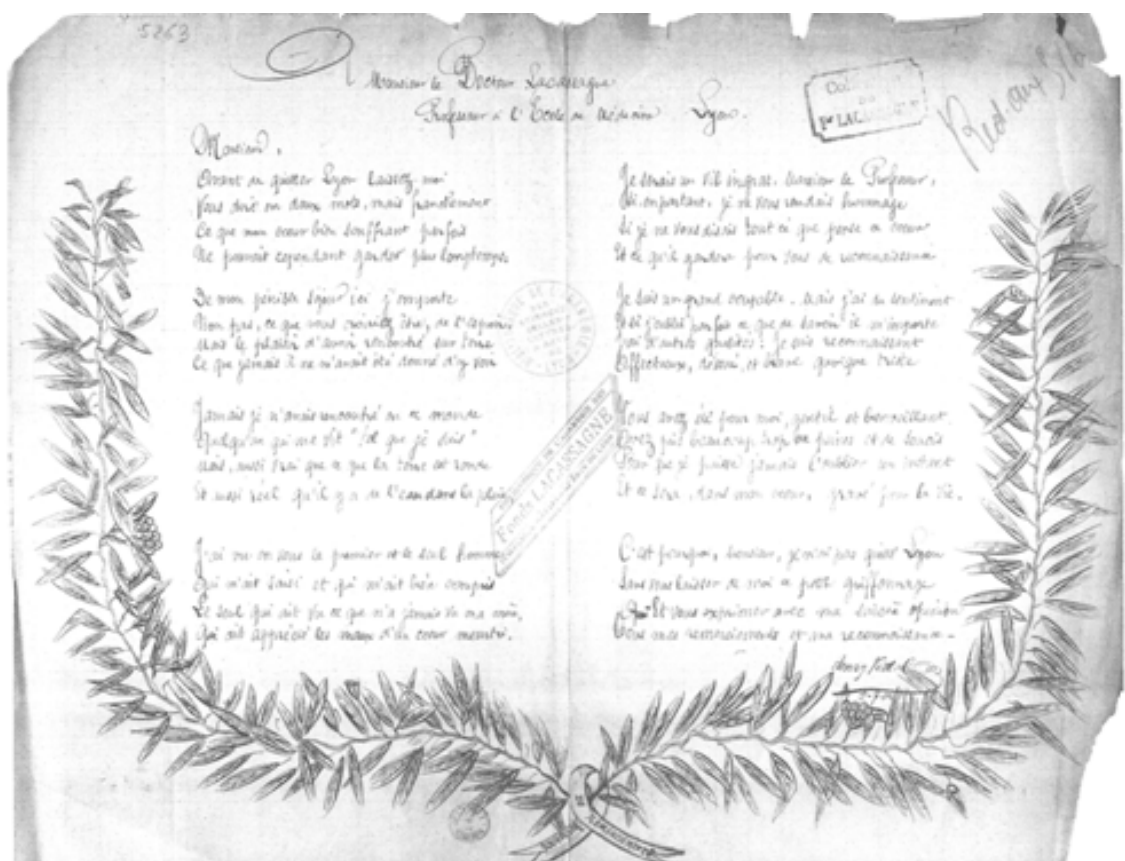 5263
Monsieur le Docteur Lacassagne
Professeur à l'Ecole de Médecine Lyon.
Monsieur,
Avant de quitter Lyon laissez moi
Vous dire en deux mots, mais franchement
Ce que mon cœur bien souffrant parfois
Ne pouvait cependant garder plus longtemps.
De mon pénible séjour ici j'emporte
Non pas, ce que vous être, de l'espoir,
Mais le plaisir d'avoir rencontré sur terre
Ce que jamais il ne m'avait été donné d'y voir
Jamais je n'avais rencontré en ce monde
Quelqu'un qui me vit "tel que je suis"
Mais, aussi vrai que ce que la terre est ronde
Et aussi réel qu'il y a de l'eau dans la pluie,
J'ai vu en vous le premier et le seul homme
Qui m'ait saisi et qui m'ait bien compris
Le seul qui ait vu ce que n'a jamais vu ma
Qui ait apprécié les maux d'un cœur meurtri.
Je serais un vil ingrat, Monsieur le Professeur,
Si, en partant, je ne vous rendais hommage
Si je ne vous disais tout ce que pense ce cœur
Et ce qu'il gardera pour vous de reconnaissance
Je suis un grand coupable, mais j'ai du sentiment
Et si j'oublie parfois ce que de savoir il m'importe
J'ai d'autres qualités! Je suis reconnaissant
Affectueux, dévoué, et quoique triste
Vous avez été pour moi, gentil et bienveillant
Avez pris beaucoup trop de peines et de soucis
Pour que je puisse jamais l'oublier un instant
Et ce sera, dans mon cœur, gravé pour la vie.
C'est pourquoi, Monsieur, je n'ai pas quitté Lyon
Sans vous laisser de moi ce petit griffonnage
Et vous exprimer avec ma
Tous mes remerciements et ma reconnaissance.
Fonds LACASSAGNE